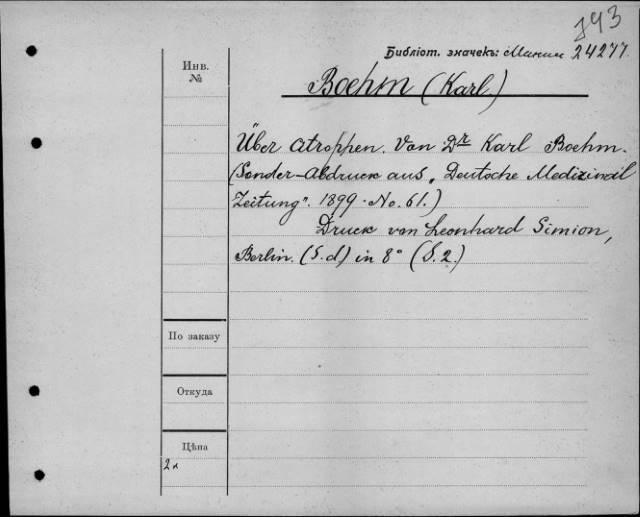 743
Библіот. значекъ: 24277
Инв.
№
Boehm (Karl)
Über Atrophen. Von Dr Karl Boehm.
(Sonder-Abdruck aus „Deutsche Medizinal
Zeitung". 1899. No. 61.)
Druck von Leonhard Simion,
Berlin. (S.d) in 8° (S. 2.)
По заказу
Откуда
Цѣна
2